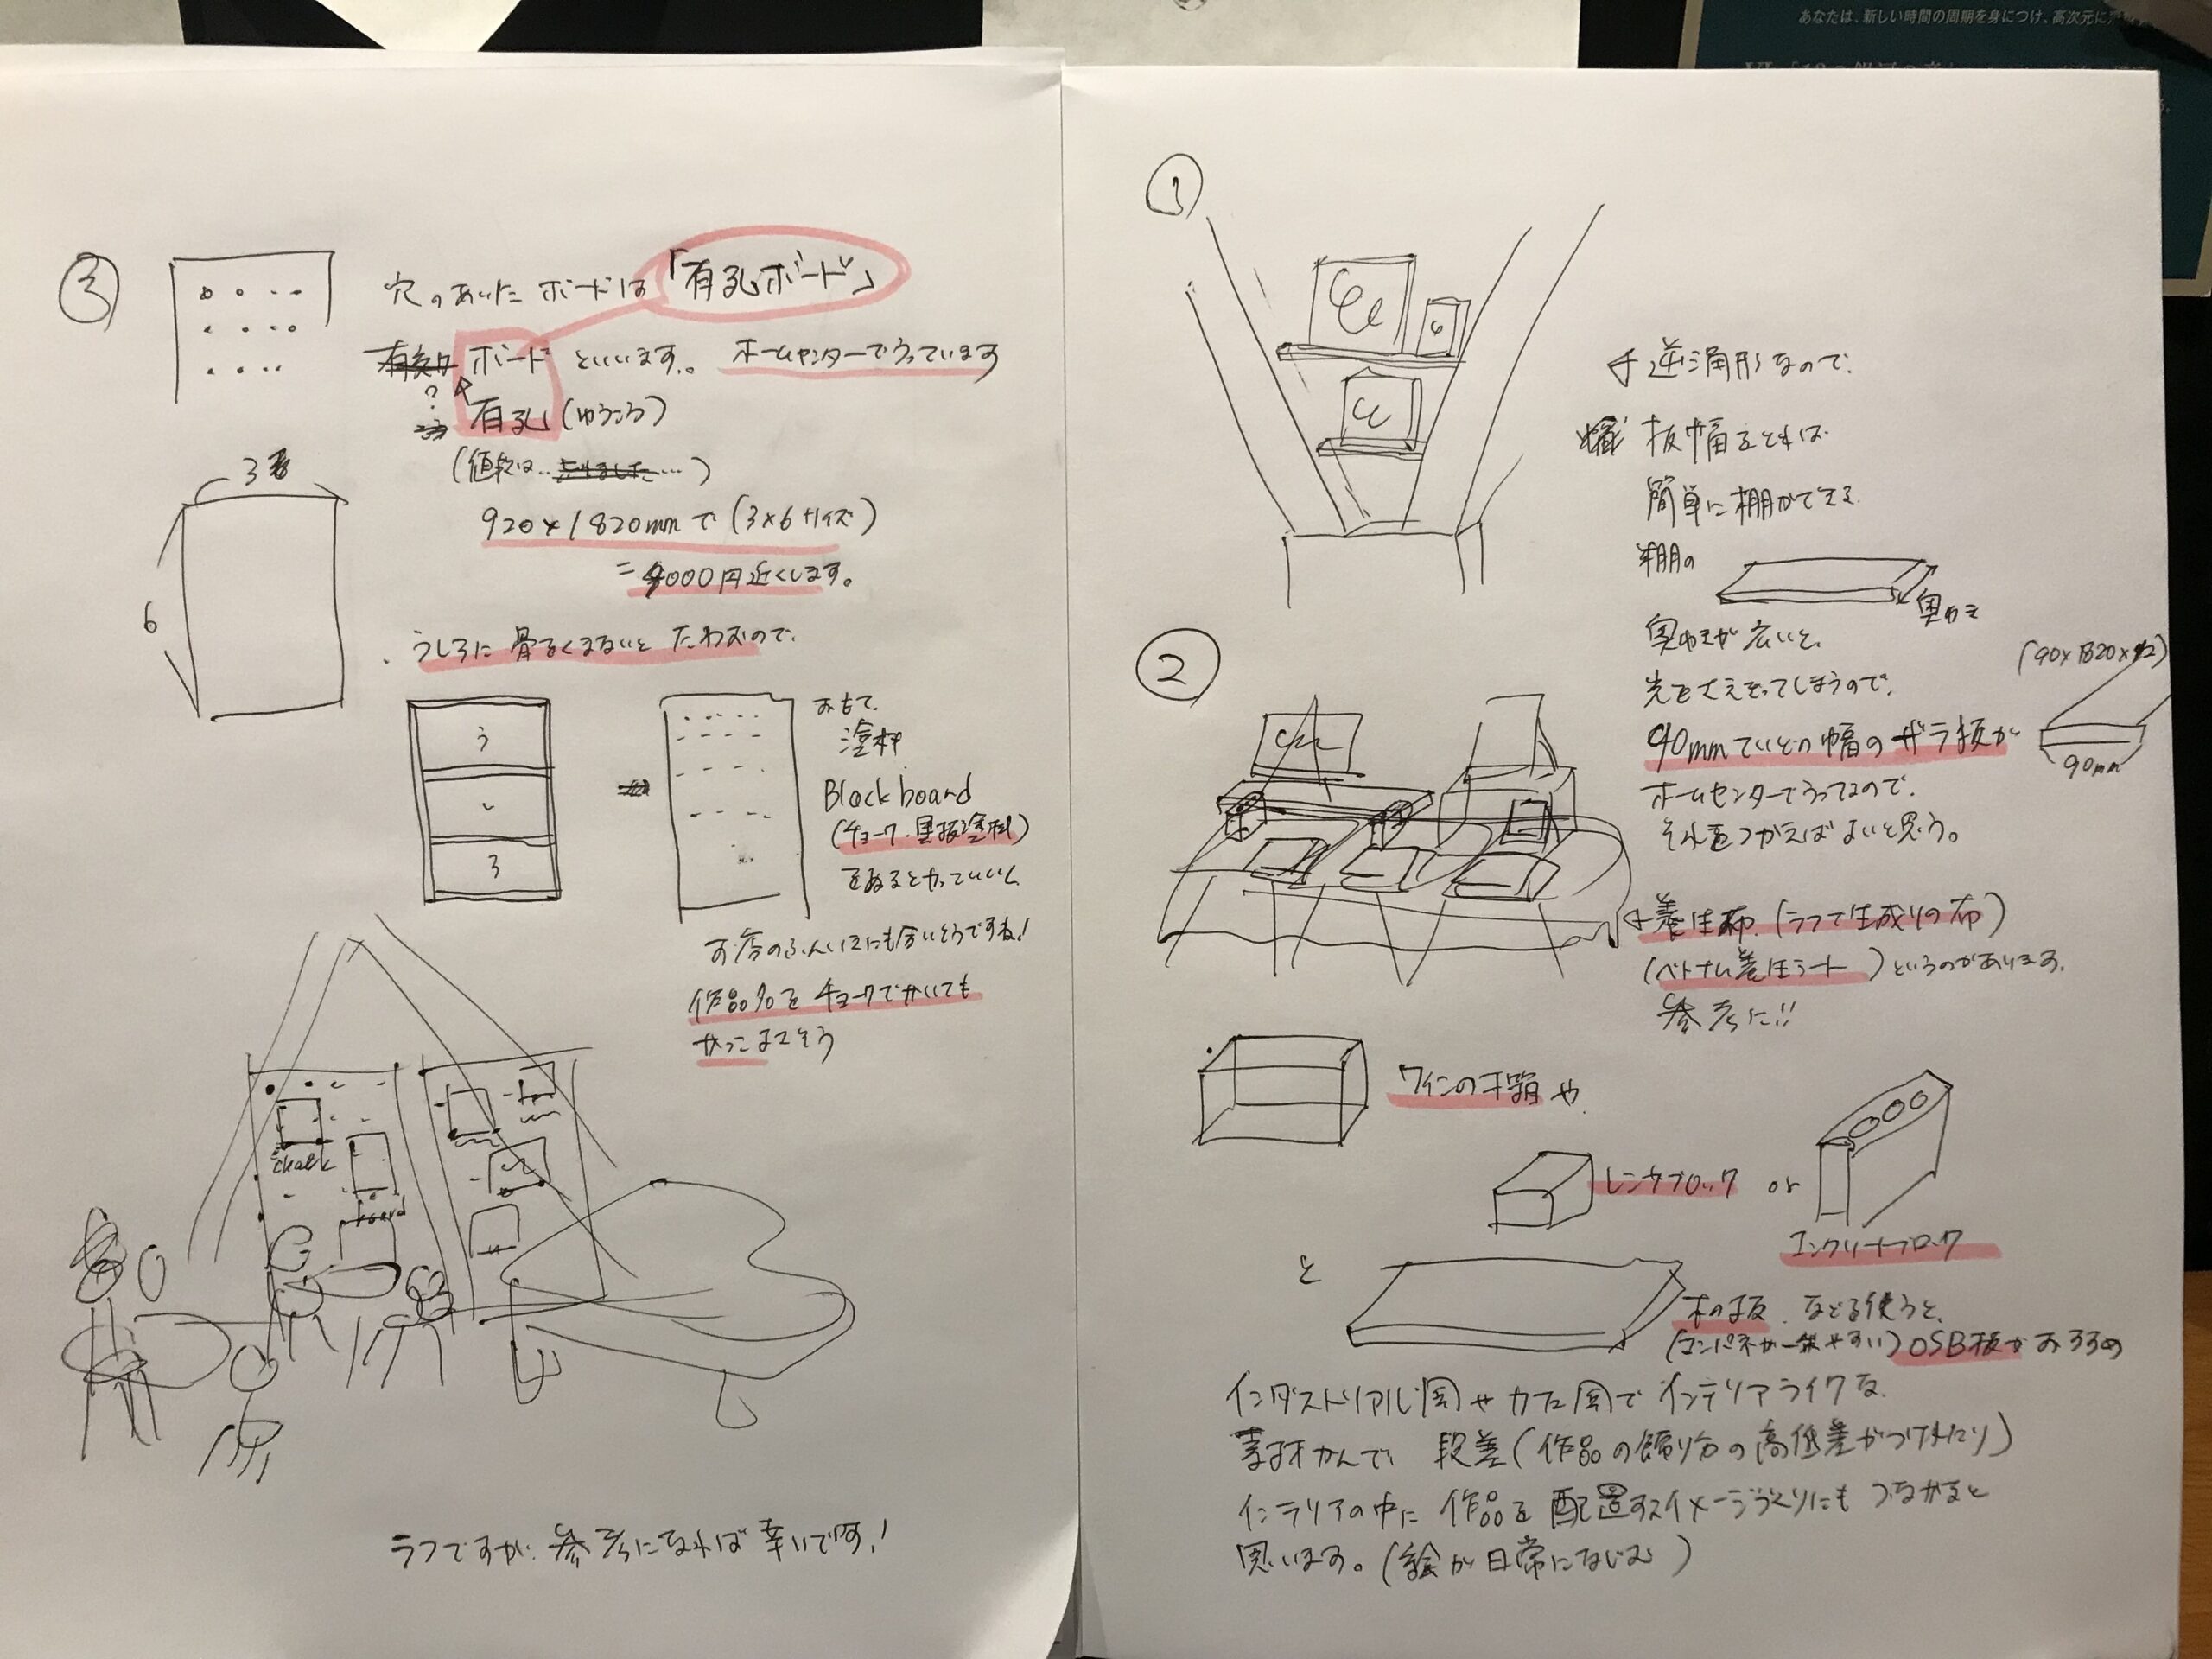 あなたは、新しい時間の周期を身につけ、高次元に
③
穴のあいた ボードは 「有孔ボード」
ボード といいます。 ホームセンターでうっています
?
有孔 (ゆうこう)
(値段は‥ ‥‥)
920×1820mmで (3×6サイズ)
= 4000円近くします。
3
6
・うしろに 骨をくまないと たわむので、
う
し
ろ
おもて、
塗料
Blackboard
(チョーク・黒板塗料)
をぬるとかっていいし
お店のふんいきにも合いそうですね!
作品名を チョークでかいても
かっこよさそう
chalk
board
ラフですが、参考になれば 幸いです!
①
逆三角形なので、
板幅をとれば
簡単に棚ができる
棚の
奥ゆき
奥ゆきが 広いと、
光を
90mmていどの幅の ザラ板が
ホームセンターでうってるので、
それをつかえばよいと思う。
(90×1820×12)
90mm
②
養生布 (ラフで生成りの布)
(ベトナム養生シート) というのがあります。
参考に!!
ワインの木箱 や
レンガブロック or
コンクリートブロック
と
木の板、などを使うと、
(コンパネが一番やすい) OSB板がおススめ
インダストリアル風やカフェ風で インテリアライクな
素材かんで 段差 (作品の飾り方の高低差がつけれたり)
インテリアの中に 作品を 配置するイメージづくりにも つながると
思います。(絵が日常になじむ)